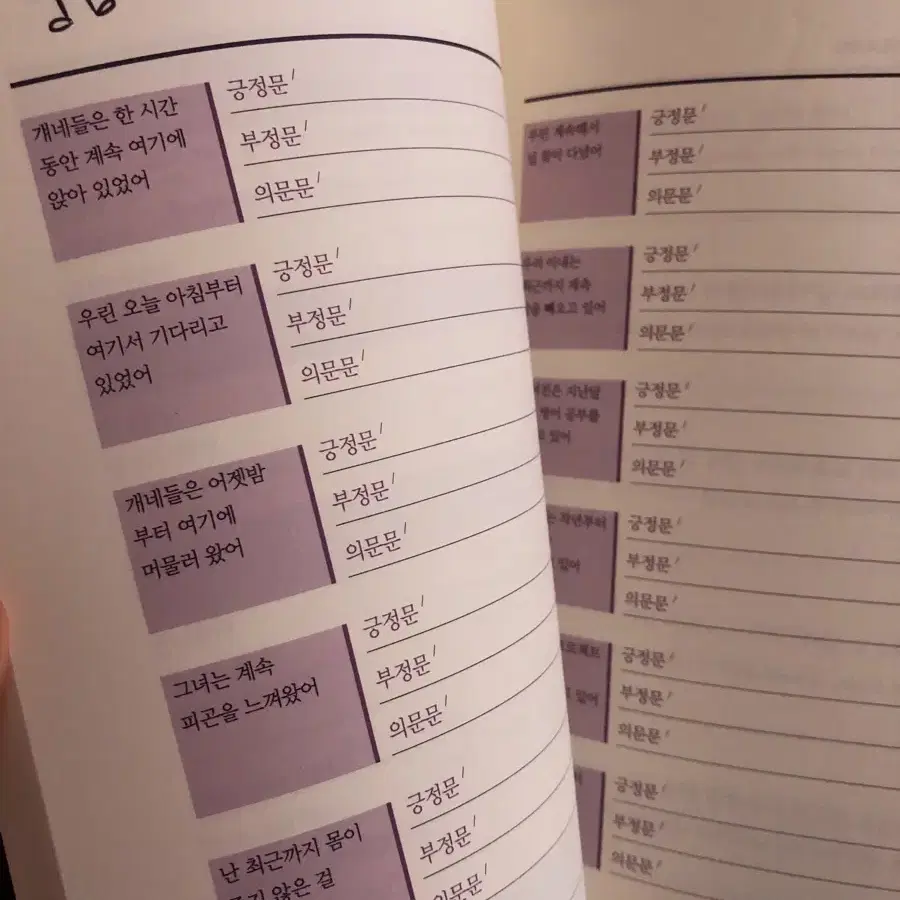 걔네들은 한 시간
동안 계속 여기에
앉아 있었어
긍정문
부정문
의문문
우린 오늘 아침부터
여기서 기다리고
있었어
긍정문
부정문
의문문
걔네들은 어젯밤
부터 여기에
머물러 왔어
긍정문
부정문
의문문
그녀는 계속
피곤을 느껴왔어
긍정문
부정문
의문문
난 최근까지 몸이
않은 걸
긍정문
부정문
의문문
우린 계속해서
많이 다녔어
긍정문
부정문
의문문
아내는
최근까지 계속
빼오고 있어
긍정문
부정문
의문문
지난달
영어 공부를
있어
긍정문
부정문
의문문
작년부터
있어
긍정문
부정문
의문문
프로젝트
있어
긍정문
부정문
의문문
긍정문
부정문
의문문